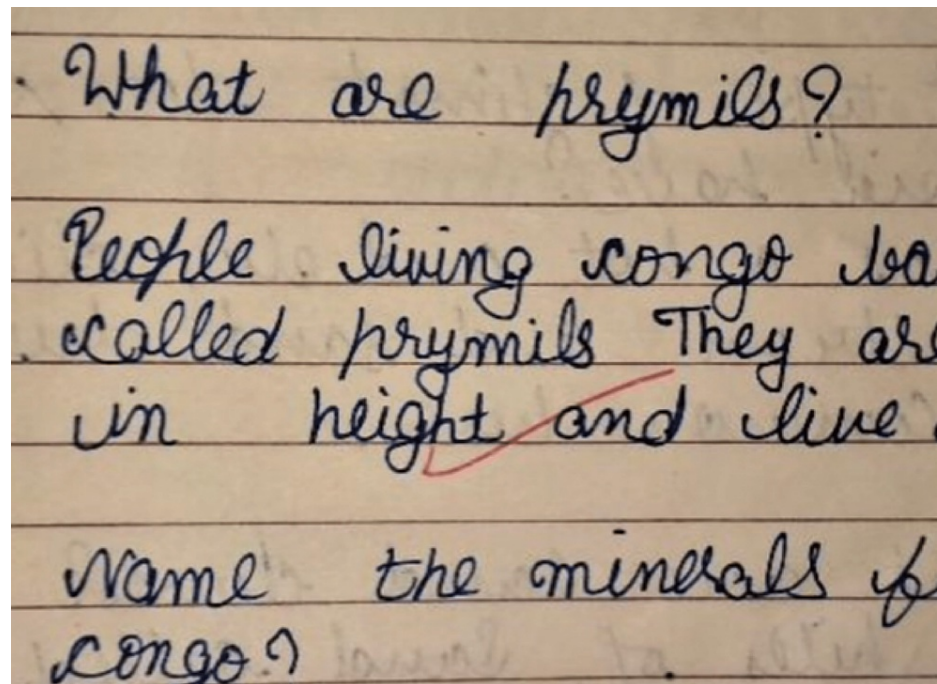 What are prymils?
People living congo ba
called prymils They are
in height and live
Name the minerals
congo?